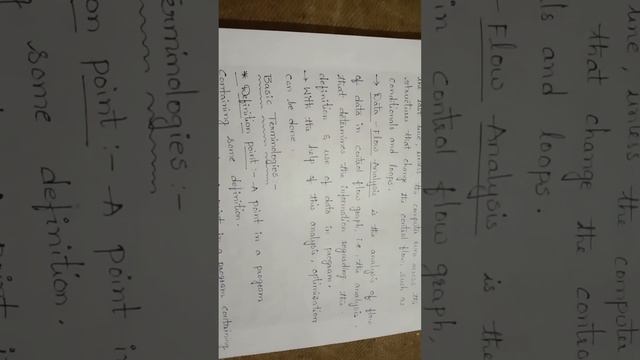 structures that change the control flow such as
conditionals and loops.
→ Data-Flow Analysis is the analysis of flow
of data in control flow graph, i.e. the analysis
that determines the information regarding the
definition & use of data in program.
→ With the help of this analysis, optimization
can be done.
Basic Terminologies :-
* Definition point :- A point in a program
containing some definition.
point in a program containing